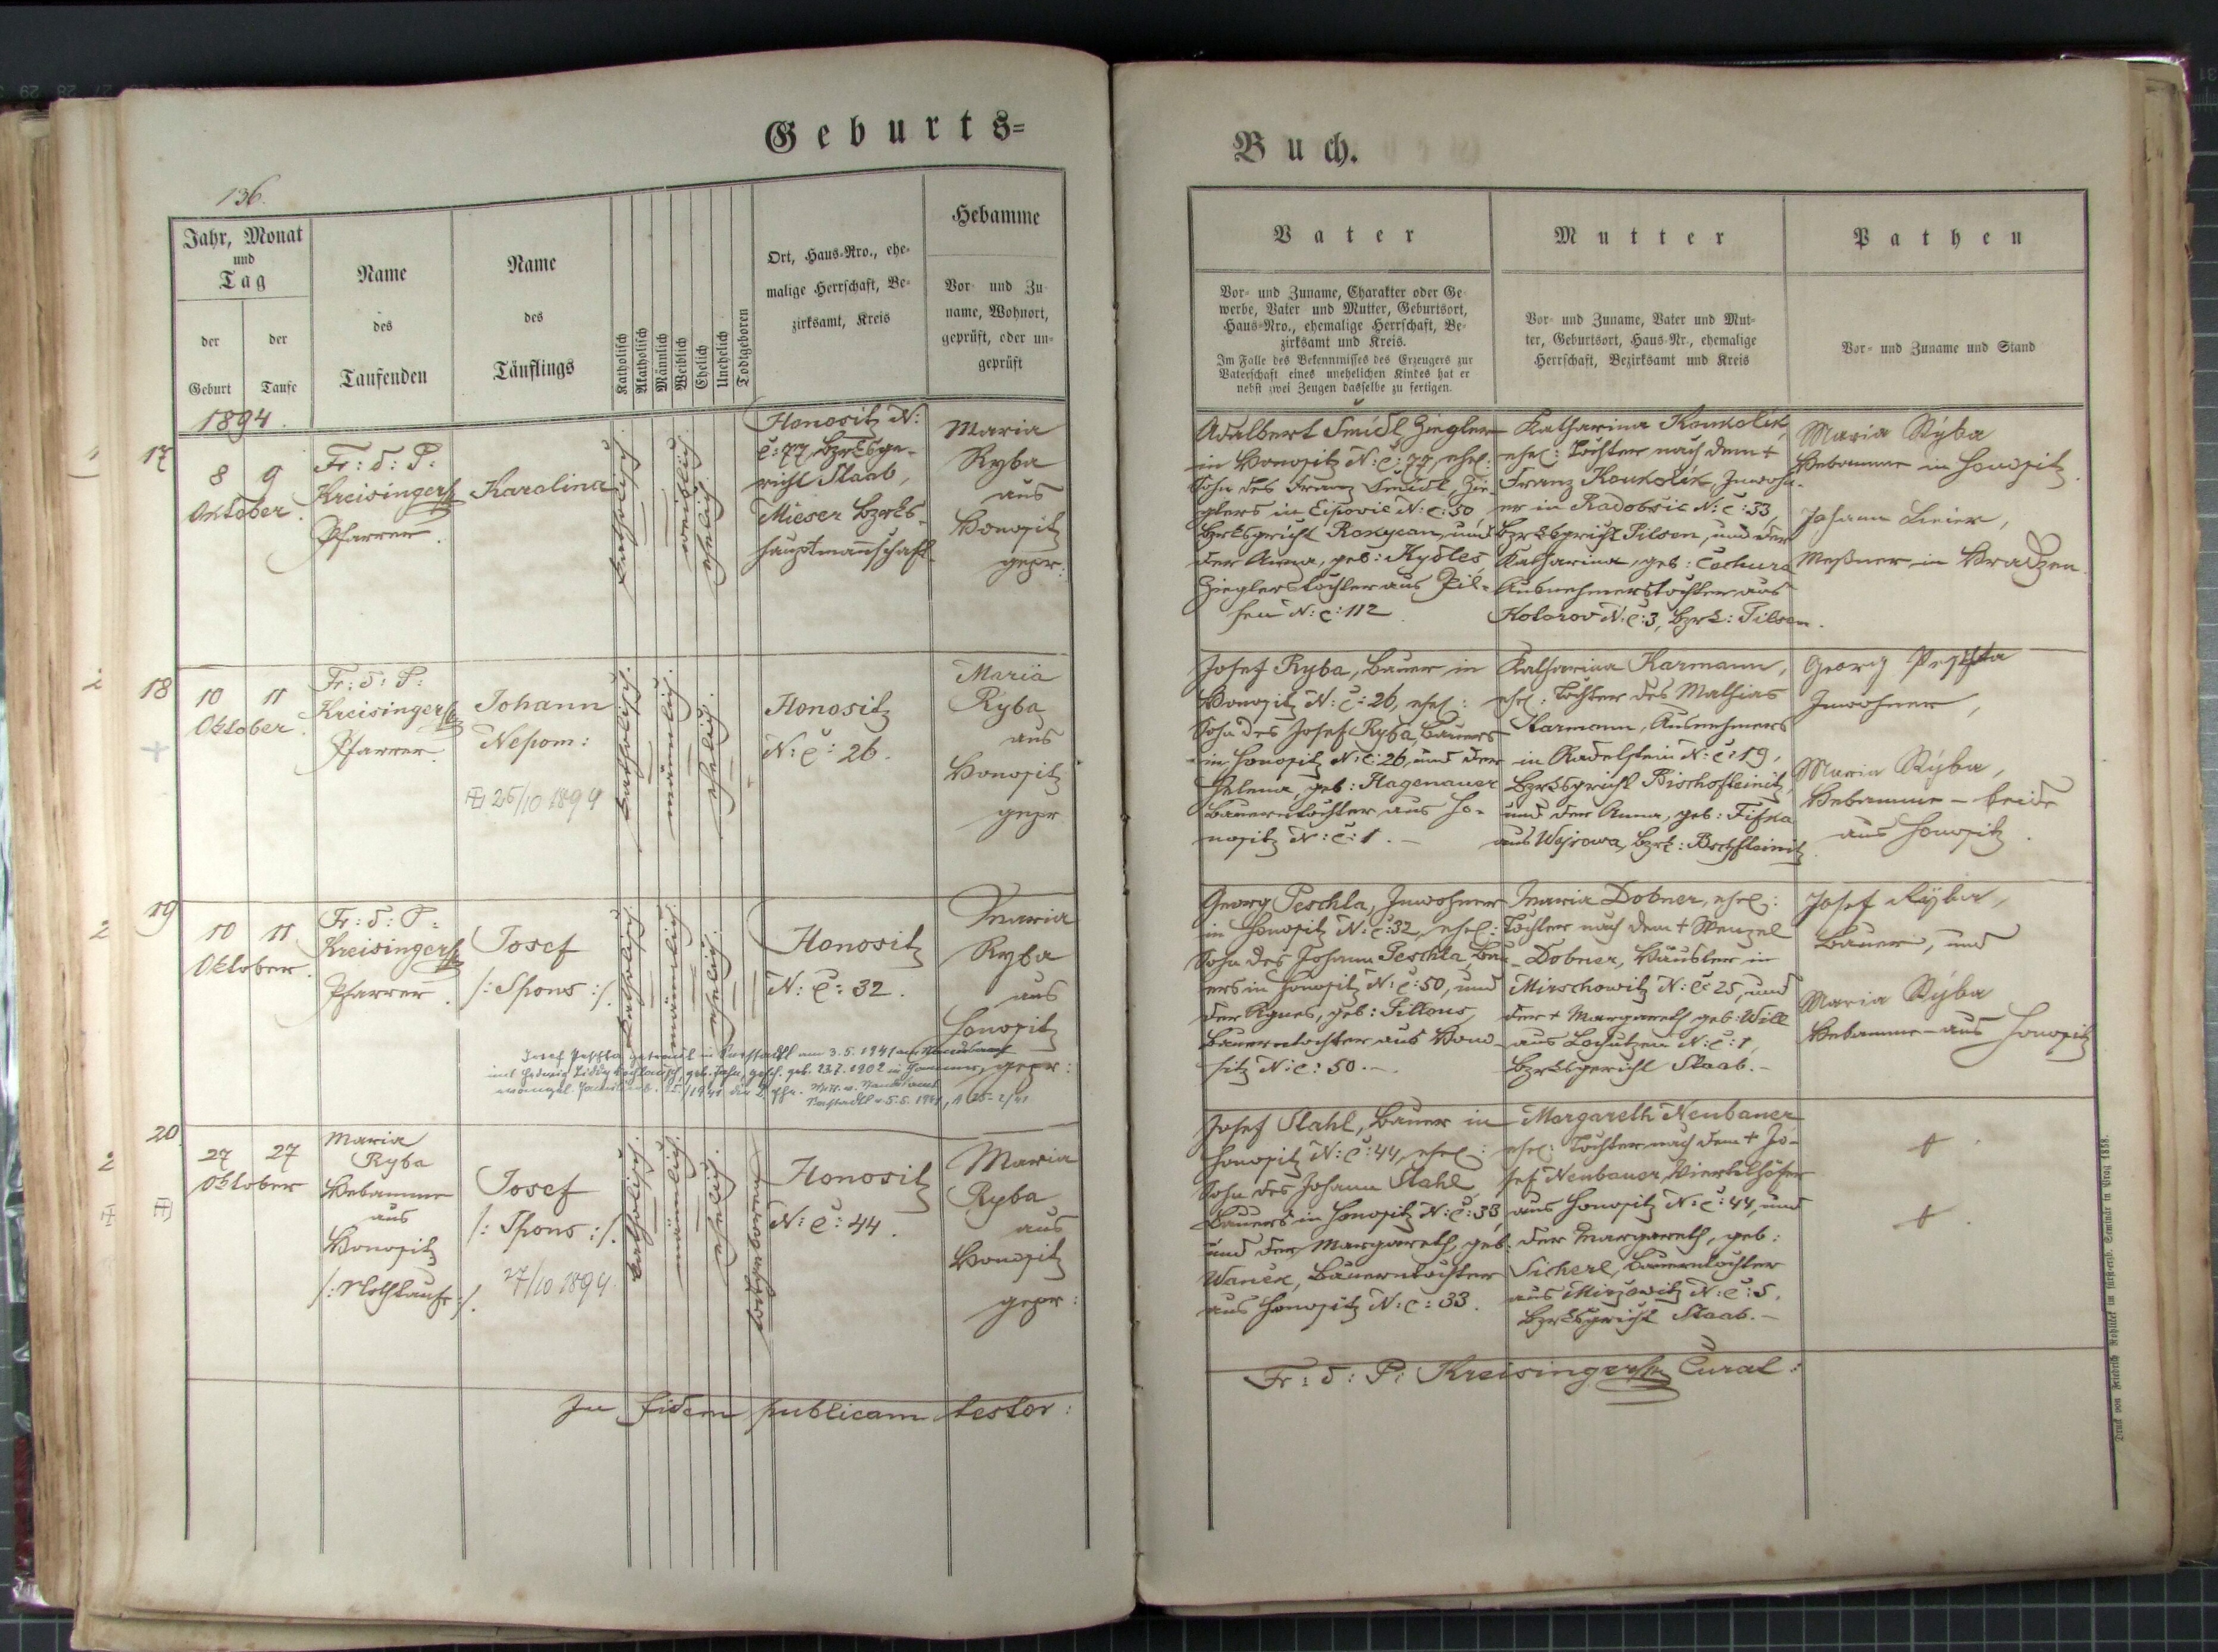 Geburts=
136.
Jahr, Monat
und
Tag
der
Geburt
der
Taufe
Name
des
Taufenden
Name
des
Täuflings
Katholisch
Akatholisch
Männlich
Weiblich
Ehelich
Unehelich
Todtgeboren
Ort, Haus=Nro., ehe=
malige Herrschaft, Be=
zirksamt, Kreis
Hebamme
Vor= und Zu=
name, Wohnort,
geprüft, oder un=
geprüft
1894.
1
17
8 9
Oktober.
Fr: d: P:
Kreisinger
Pfarrer.
Karolina
katholisch.
weiblich.
ehelich.
Honositz N:
č: 77 Bzrksge-
richt Staab,
Mieser Bzrks-
hauptmannschaft
Maria
Ryba
aus
Honositz
gepr:
2
18
10 11
Oktober.
Fr: d: P:
Kreisinger
Pfarrer.
Johann
Nepom:
26/10 1894
katholisch.
männlich.
ehelich.
Honositz
N: č: 26.
Maria
Ryba
aus
Honositz
gepr
2
19
10 11
Oktober.
Fr: d: P:
Kreisinger
Pfarrer.
Josef
/: Spons :/.
katholisch.
männlich.
ehelich.
Honositz
N: č: 32.
Maria
Ryba
aus
Honositz
gepr:
Josef Peschla getraut in am 3.5.1941
mit Hedwig geb. Jahn, gesch. geb. 23.7.1902 in
5.5.1941,
2
20
27 27
Oktober
Maria
Ryba
Hebamme
aus
Honositz
/: Nothtaufe :/.
Josef
/: Spons :/.
27/10 1894.
katholisch.
männlich.
ehelich.
todtgeboren
Honositz
N: č: 44.
Maria
Ryba
aus
Honositz
gepr:
In fidem publicam testor:
Buch.
Vater
Vor= und Zuname, Charakter oder Ge=
werbe, Vater und Mutter, Geburtsort,
Haus=Nro., ehemalige Herrschaft, Be=
zirksamt und Kreis.
Im Falle des Bekenntnisses des Erzeugers zur
Vaterschaft eines unehelichen Kindes hat er
nebst zwei Zeugen dasselbe zu fertigen.
Mutter
Vor= und Zuname, Vater und Mut=
ter, Geburtsort, Haus=Nr., ehemalige
Herrschaft, Bezirksamt und Kreis
Pathen
Vor= und Zuname und Stand
Adalbert Šmidl Ziegler
in Honositz N: č: 77, ehel:
Sohn des Franz Šmidl, Zie-
glers in Eipovic N: č: 50,
Bzrksgericht Rokycan, und
der Anna, geb: Kydles,
Zieglerstochter aus Pil-
sen N: č: 112.
Katharina Koukolik,
ehel: Tochter nach dem +
Franz Koukolik, Inwoh-
er in Radobčic N: č: 33,
Bzrksgericht Pilsen, und der
Katharina, geb: Čochura
Ausnehmerstochter aus
Kotorov N: č: 3, Bzrk: Pilsen.
Maria Ryba
Hebamme in Honositz.
Johann Beier,
Meßner in Hradzen.
Josef Ryba, Bauer in
Honositz N: č: 26, ehel:
Sohn des Josef Ryba, Bauers
in Honositz N: č: 26, und der
Helena, geb: Hagenauer
Bauerntochter aus Ho-
nositz N: č: 1.-
Katharina Karmann,
ehel: Tochter des Mathias
Karmann, Ausnehmers
in Radelstein N: č: 19,
Bzrksgericht Bischofteinitz,
und der Anna, geb: Fifka
aus Wejrowa, Bzrk: Bschfteinitz.
Georg Peschta
Inwohner,
Maria Ryba,
Hebamme - beide
aus Honositz.
Georg Peschla, Inwohner
in Honositz N: č: 32, ehel:
Sohn des Johann Peschla, Bau-
ers in Honositz N: č: 50, und
der Agnes, geb: Sillous,
Bauerntochter aus Hono-
sitz N: č: 50.-
Maria Dobner, ehel:
Tochter nach dem + Wenzel
Dobner, Häusler in
Mirschowitz N: č: 25, und
der + Margareth, geb: Will
aus Lochutzen N: č: 1,
Bzrksgericht Staab.-
Josef Ryba,
Bauer, und
Maria Ryba
Hebamme - aus Honositz
Josef Stahl, Bauer in
Honositz N: č: 44, ehel:
Sohn des Johann Stahl,
Bauers in Honositz N: č: 33,
und der Margareth, geb:
Wanek, Bauerntochter
aus Honositz N: č: 33.
Margareth Neubauer
ehel: Tochter nach dem + Jo-
sef Neubauer, Viertelhöfer
aus Honositz N: č: 44, und
der Margareth, geb:
Sicherl, Bauerntochter
aus Mirschowitz N: č: 5,
Bzrksgericht Staab.-
+.
+.
Fr: d: P: Kreisinger Curat:
Druck von Friedrich Rohliček im fürst-erzb. Seminär in Prag 1858.